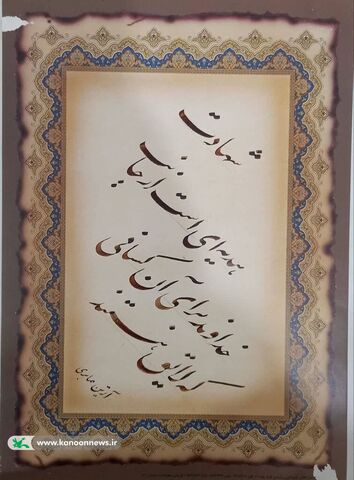 شهادت
هدیه‌ای است از جانب
خداوند برای آن کسانی
که لایق هستند
www.konoonnews.ir